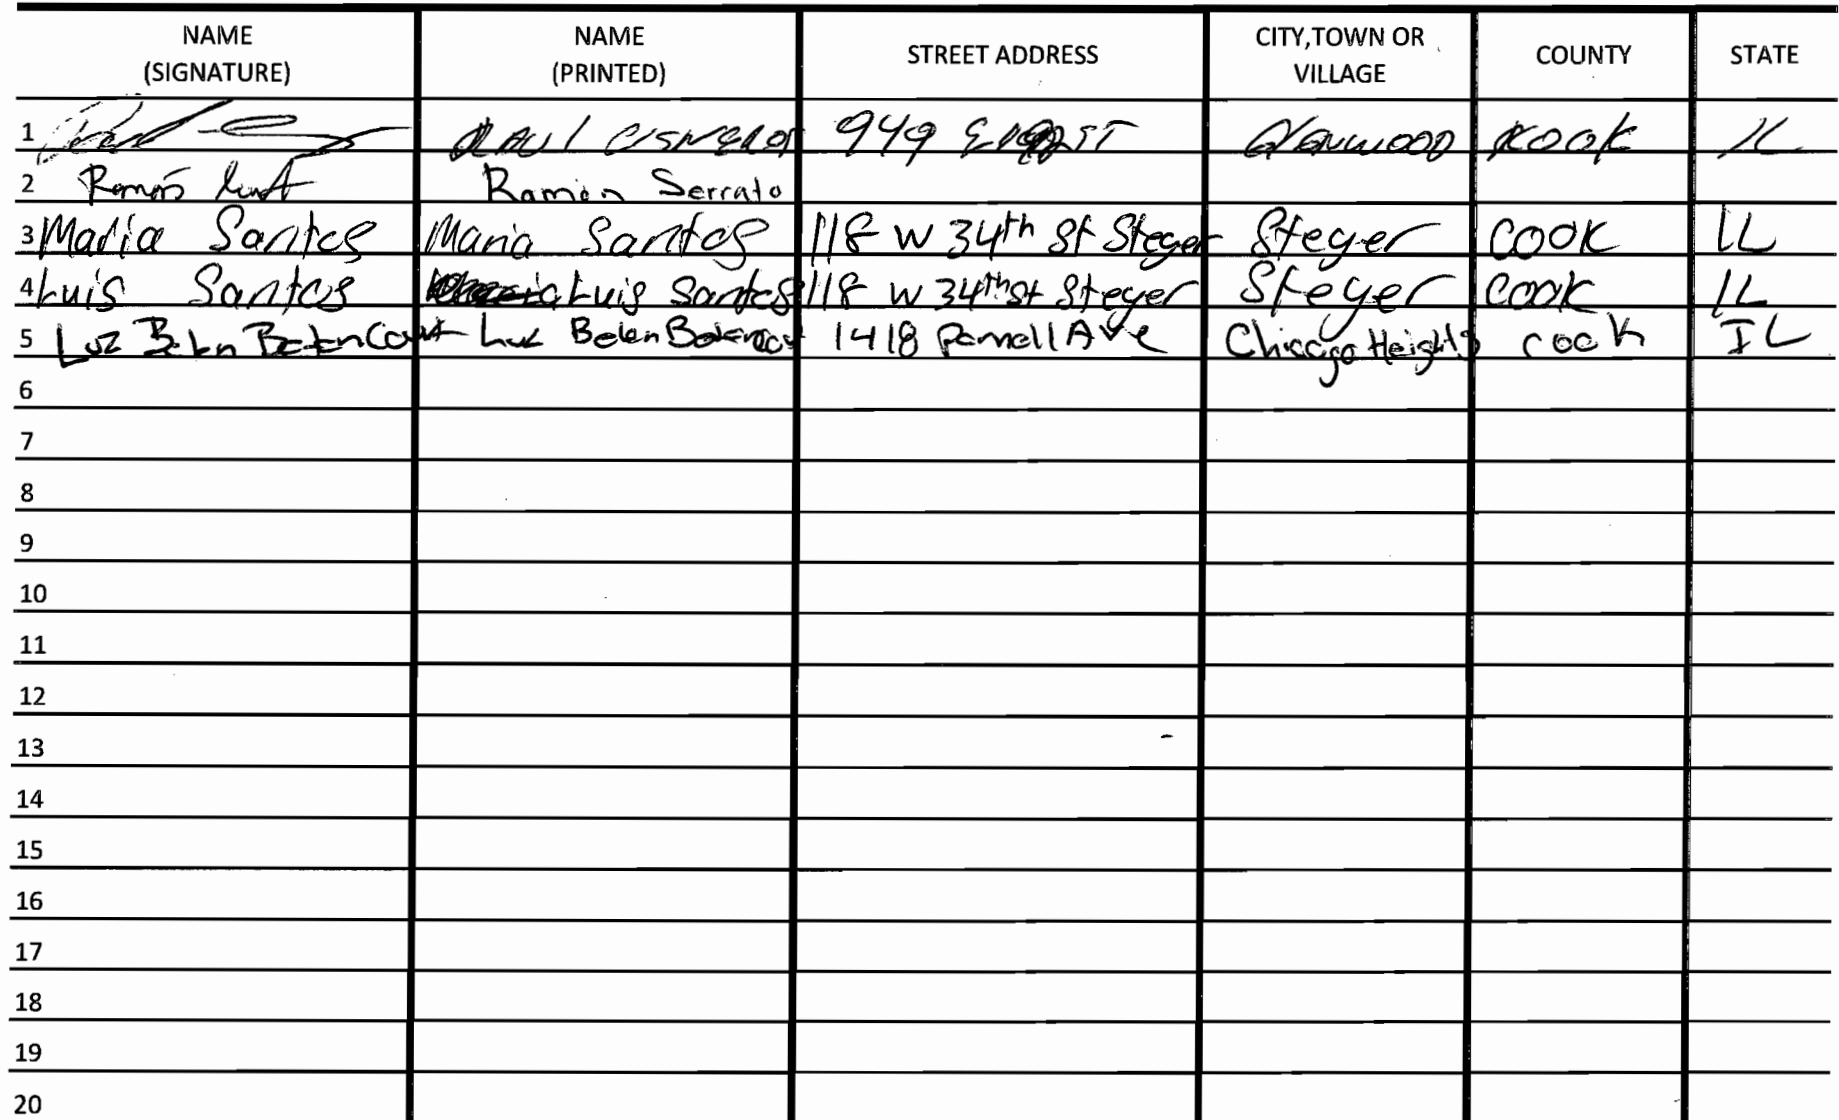 NAME (SIGNATURE) NAME (PRINTED) STREET ADDRESS CITY,TOWN OR VILLAGE COUNTY STATE
1 RAUL CISNEROS 949 Glenwood COOK IL
2 Ramon Ramon Serrato
3 Maria Santos Maria Santos 118 W 34th St Steger Steger COOK IL
4 Luis Santos Luis Santos 118 W 34th St Steger Steger COOK IL
5 Luz Belen Betancourt Luz Belen 1418 Parnell Ave Chicago Heights cook IL
6
7
8
9
10
11
12
13
14
15
16
17
18
19
20